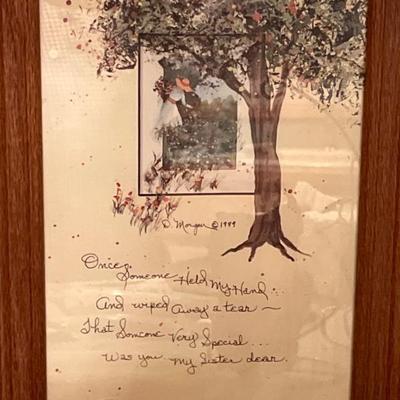 D. Morgan © 1989
Once Someone Held My Hand...
And wiped away a tear ~
That Someone Very Special...
Was you my Sister dear.